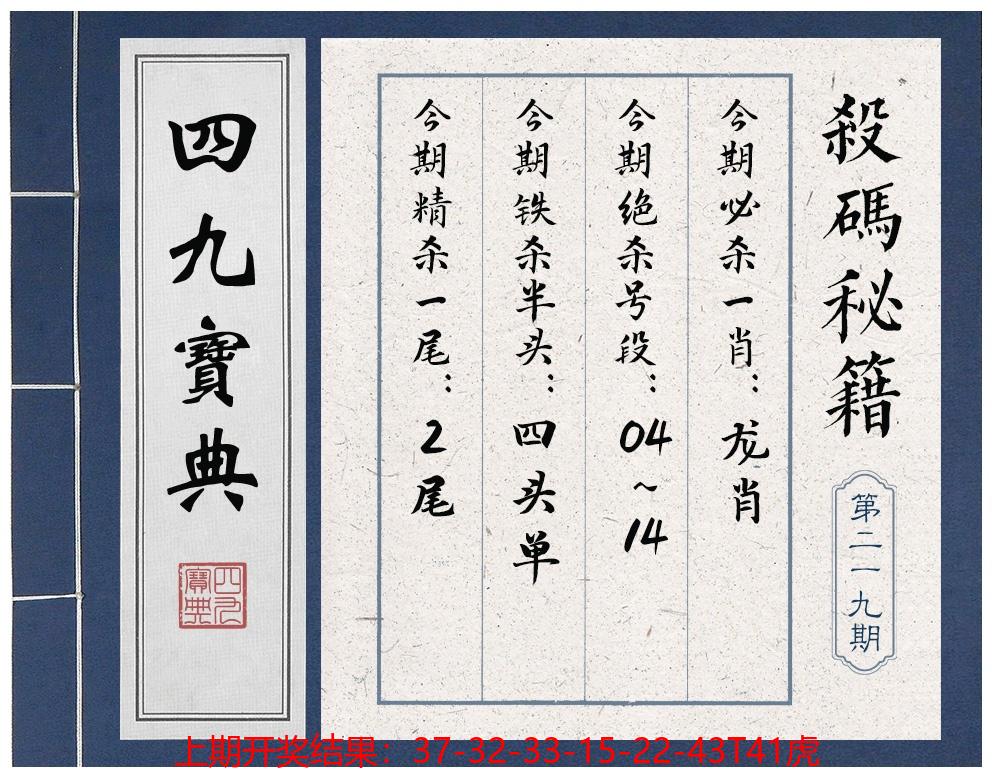 殺碼秘籍
第二一九期
今期必杀一肖：龙肖
今期绝杀号段：04~14
今期铁杀半头：四头单
今期精杀一尾：2尾
四九寶典
四九寶典
上期开奖结果：37-32-33-15-22-43T41虎